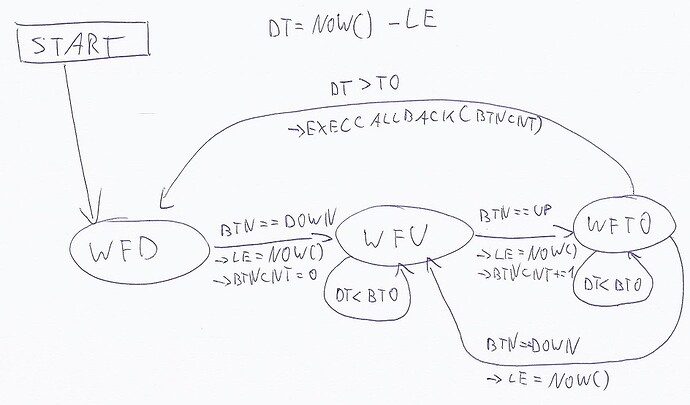 DT = NOW() - LE
START
DT > TO
→EXECCALLBACK(BTNCNT)
WFD
BTN == DOWN
→LE = NOW()
→BTNCNT = 0
WFU
DT < BTO
BTN == UP
→LE = NOW()
→BTNCNT += 1
WFTO
DT < BTO
BTN == DOWN
→LE = NOW()